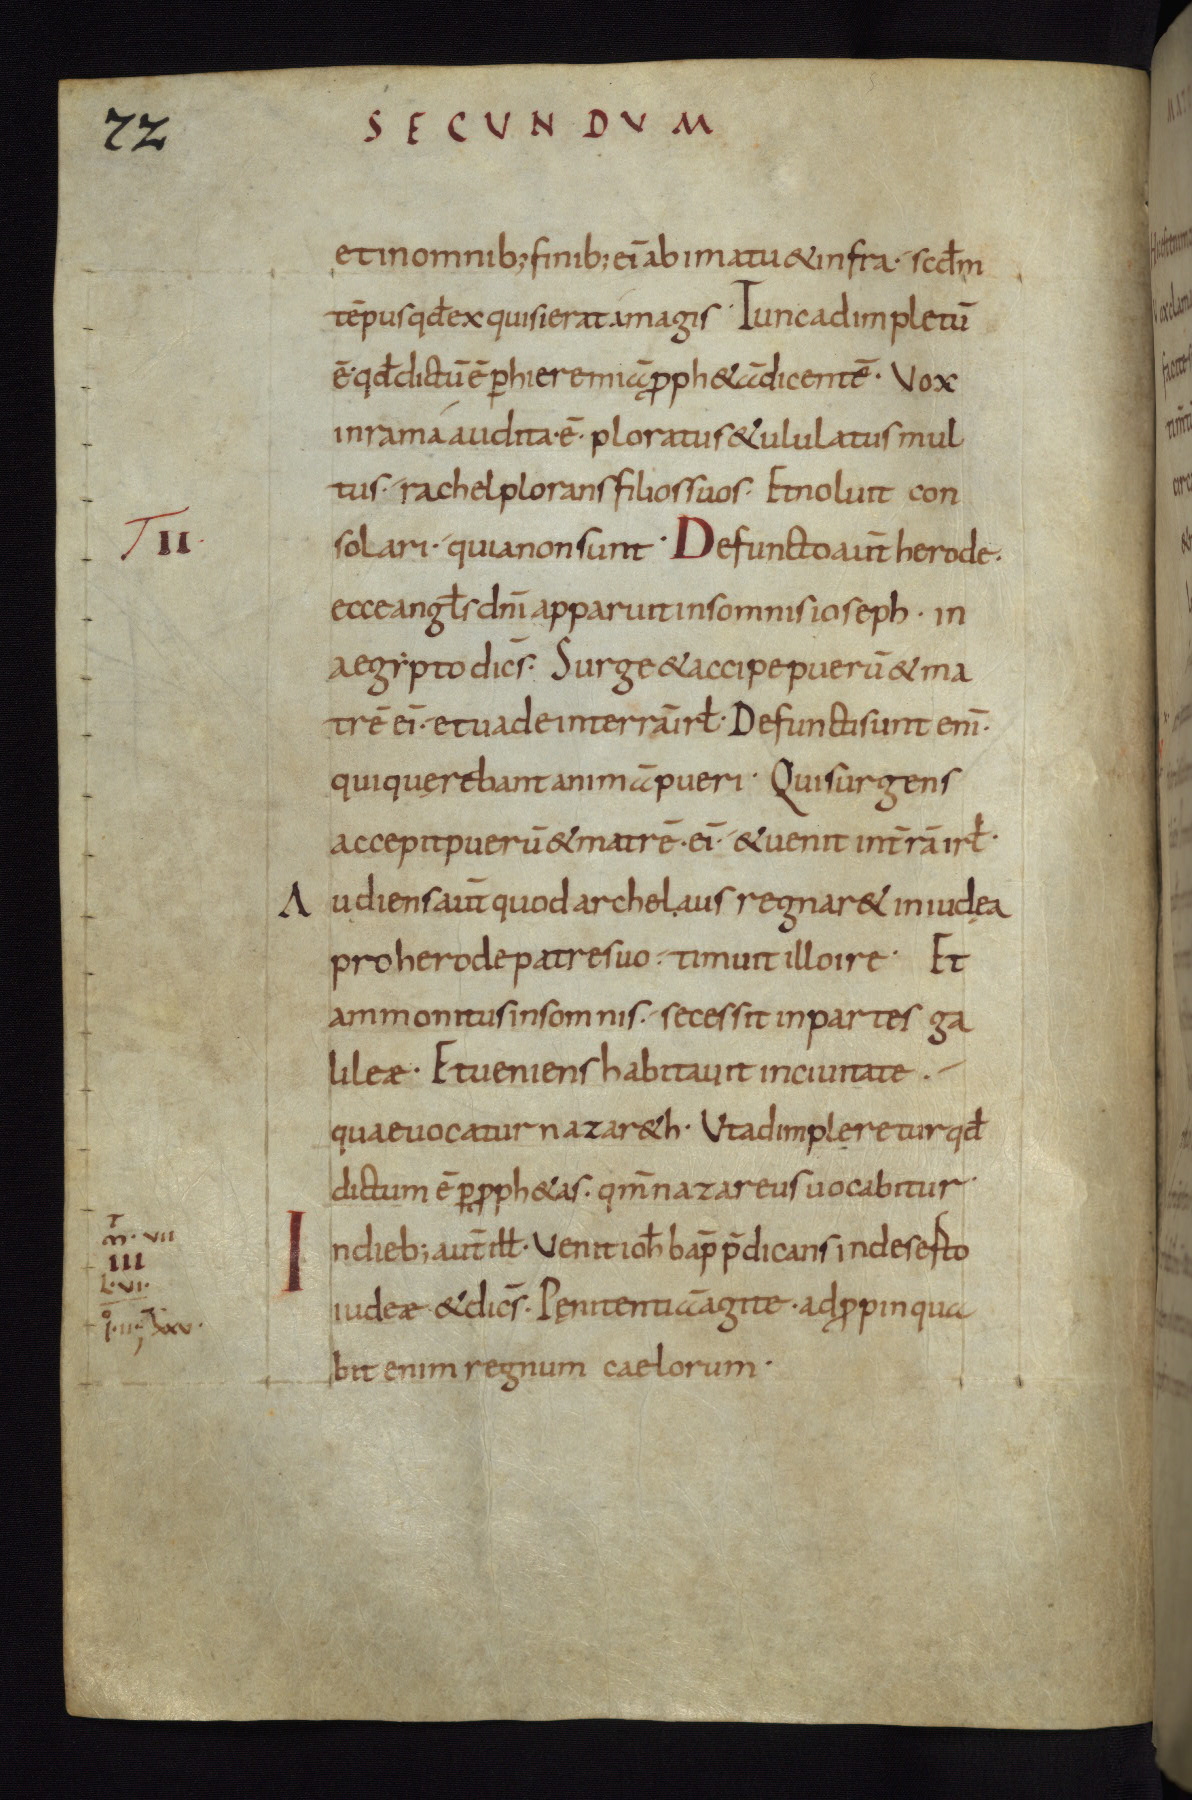 72
SECUNDUM
et in omnib; finib; ei ab imatu & infra · scdm
tēpus qđ ex quisierat a magis · Tunc adimpletū
ē · qđ dictū ē p hieremiā pph&ā dicentē · Vox
in rama audita · ē · ploratus & ululatus mul
tus · rachel plorans filios suos · Et noluit con
solari · quia non sunt · Defuncto aut̄ herode ·
II
ecce angls dn̄i apparuit in somnis ioseph · in
aegẏpto dics̄ · Surge & accipe puerū & ma
trē ei · et uade in terrā irł · Defuncti sunt eni ·
qui querebant animā pueri · Qui surgens
accepit puerū & matrē · ei · & uenit in t̄rā irł ·
Audiens aut̄ quod archelaus regnar& in iudea
pro herode patre suo · timuit illo ire · Et
ammonitus in somnis · secessit in partes ga
lileæ · Et ueniens habitauit in ciuitate ·
quae uocatur nazar&h · Vt adimpleretur qđ
dictum ē p pph&as · qm̄ nazareus uocabitur ·
m · VII
III
L · VI ·
In dieb; aut̄ ill · Venit ioh bap p̄dicans in deserto
iudeæ · & dics̄ · Penitentiā agite · adppinqua
bit enim regnum caelorum ·